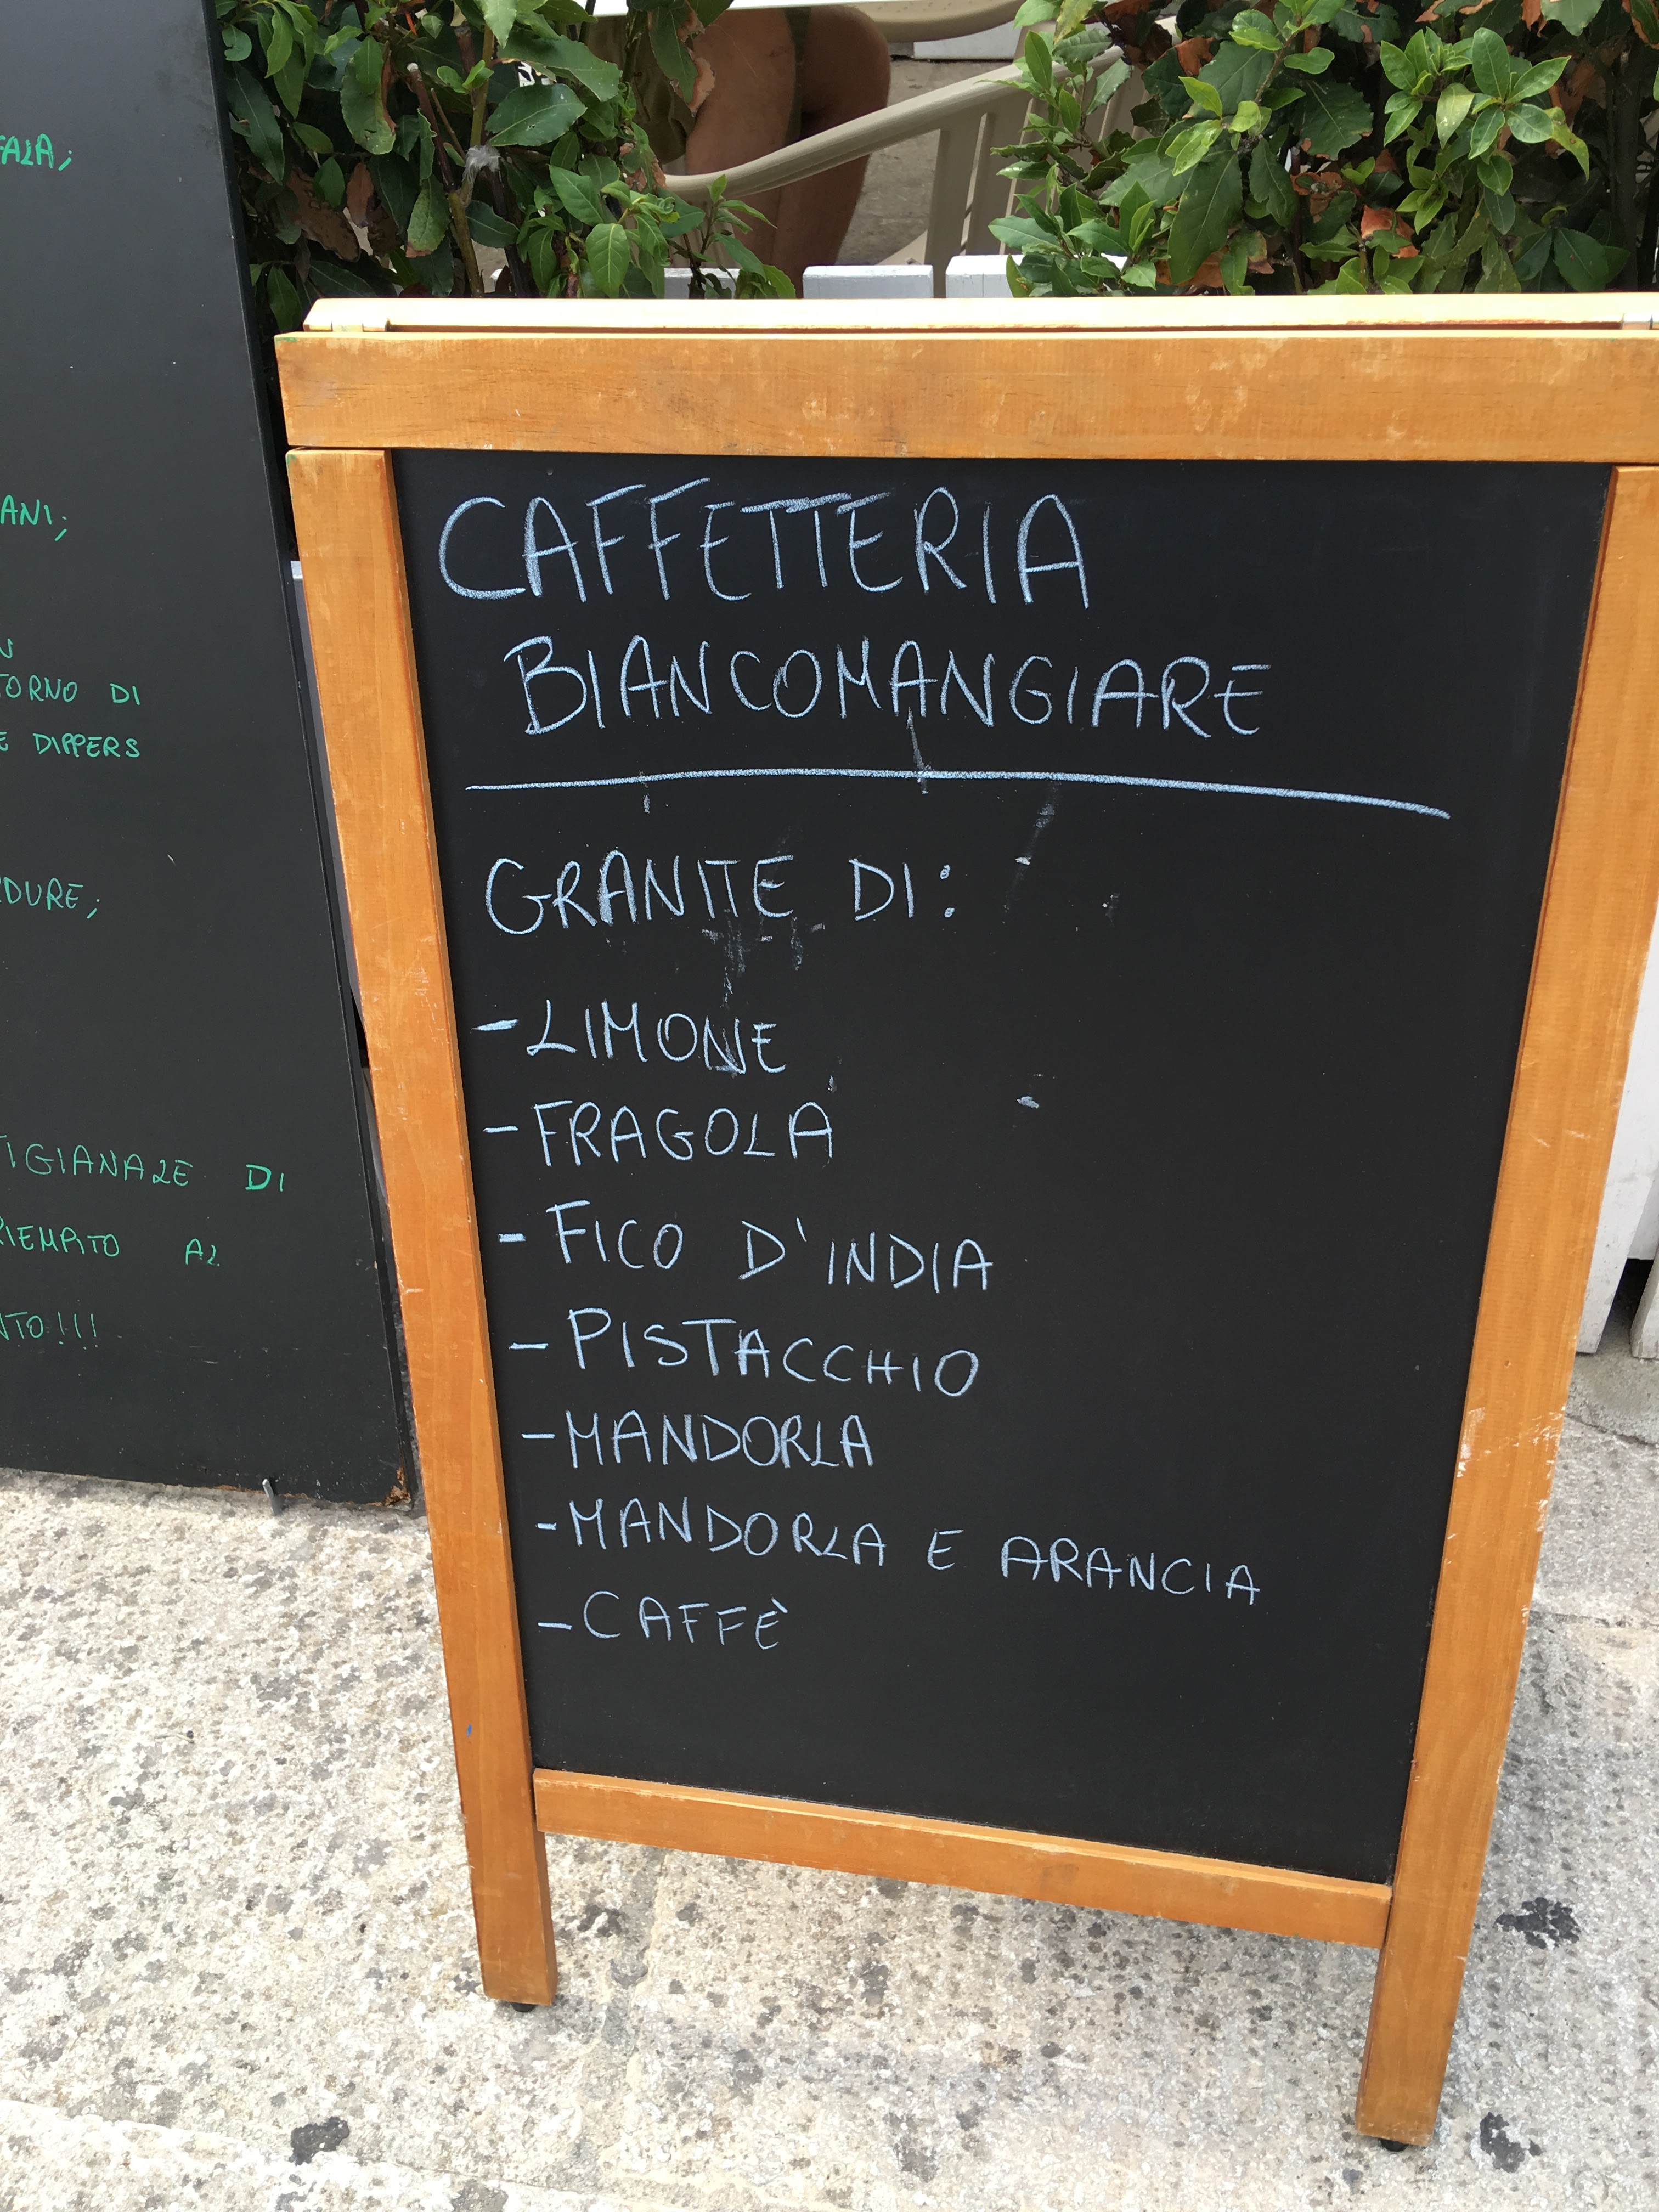 CAFFETTERIA
BIANCOMANGIARE
GRANITE DI:
- LIMONE
- FRAGOLA
- FICO D'INDIA
- PISTACCHIO
- MANDORLA
- MANDORLA E ARANCIA
- CAFFÈ
TORNO DI
E DIPPERS
TIGIANALE DI
RIEMPITO AL
NTO!!!